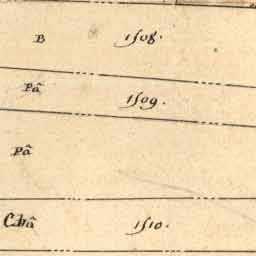 B 1508.
Pâ
1509.
Pâ
Châ 1510.